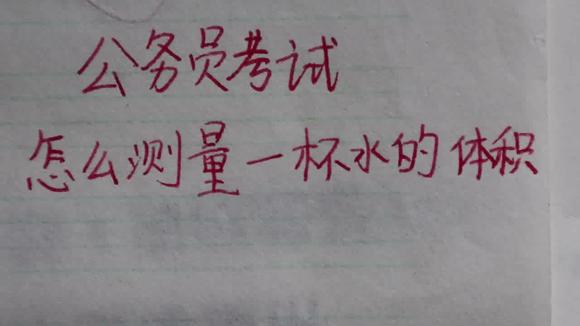 公务员考试
怎么测量一杯水的体积